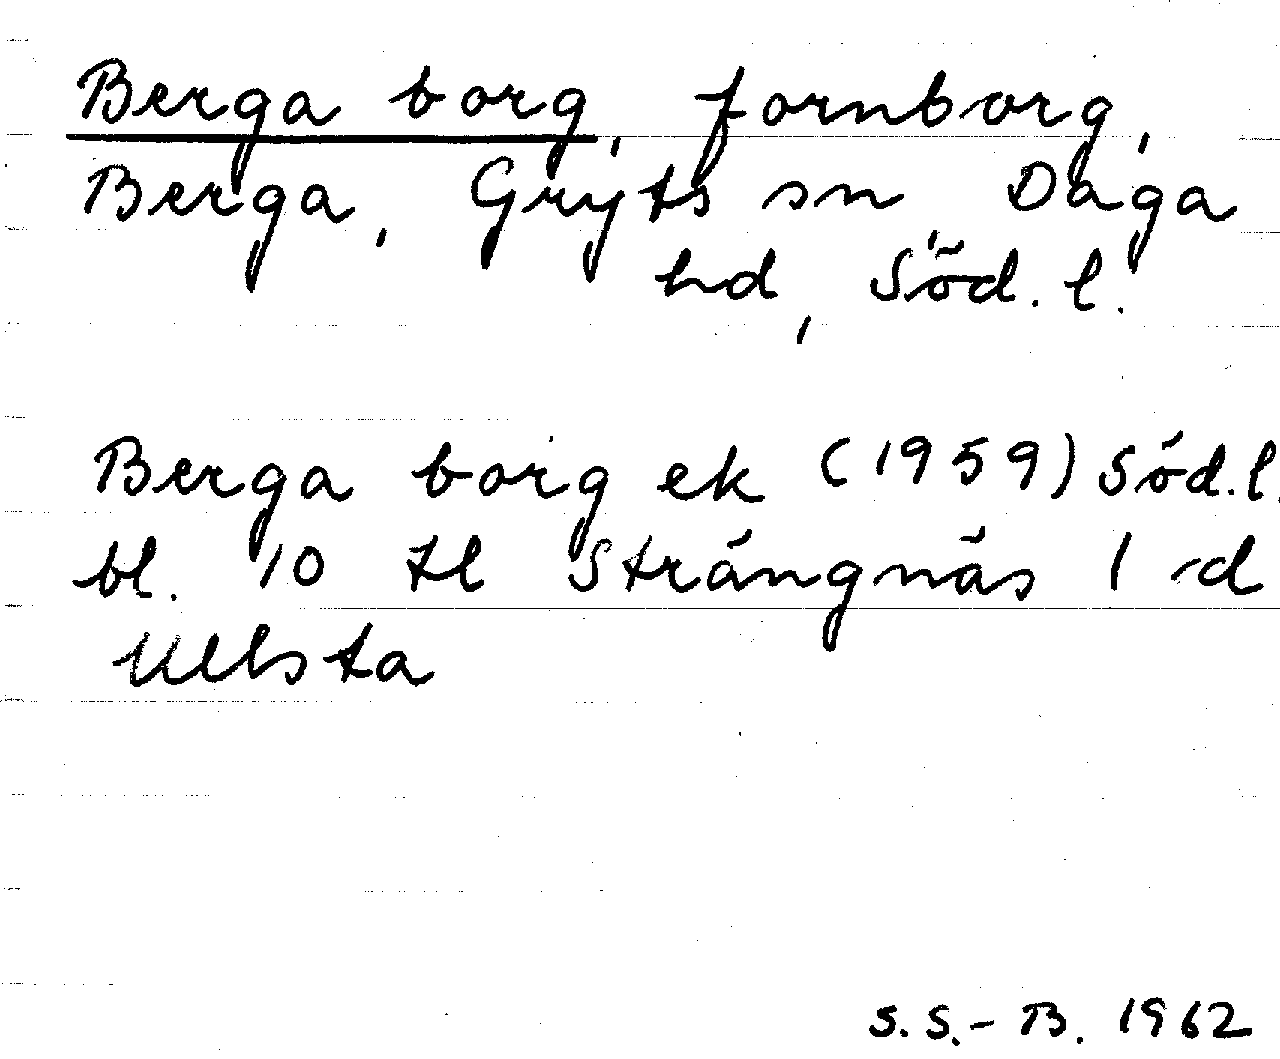 Berga borg, fornborg,
Berga, Gryts sn, Daga
hd, Söd. l.
Berga borg ek (1959) Söd. l.
bl. 10 tl Strängnäs 1 d
Ullsta
S. S.-B. 1962